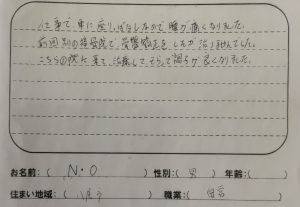 仕事で、車に座りっぱなしなので、腰が痛くなりました。
前回別の接骨院で、骨盤矯正をしたが治りませんでした。
こちらの院に来て、治療してもらって調子が良くなりました。
お名前：( N・O ) 性別：( 男 ) 年齢：( )
住まい地域：( ) 職業：( 自営 )